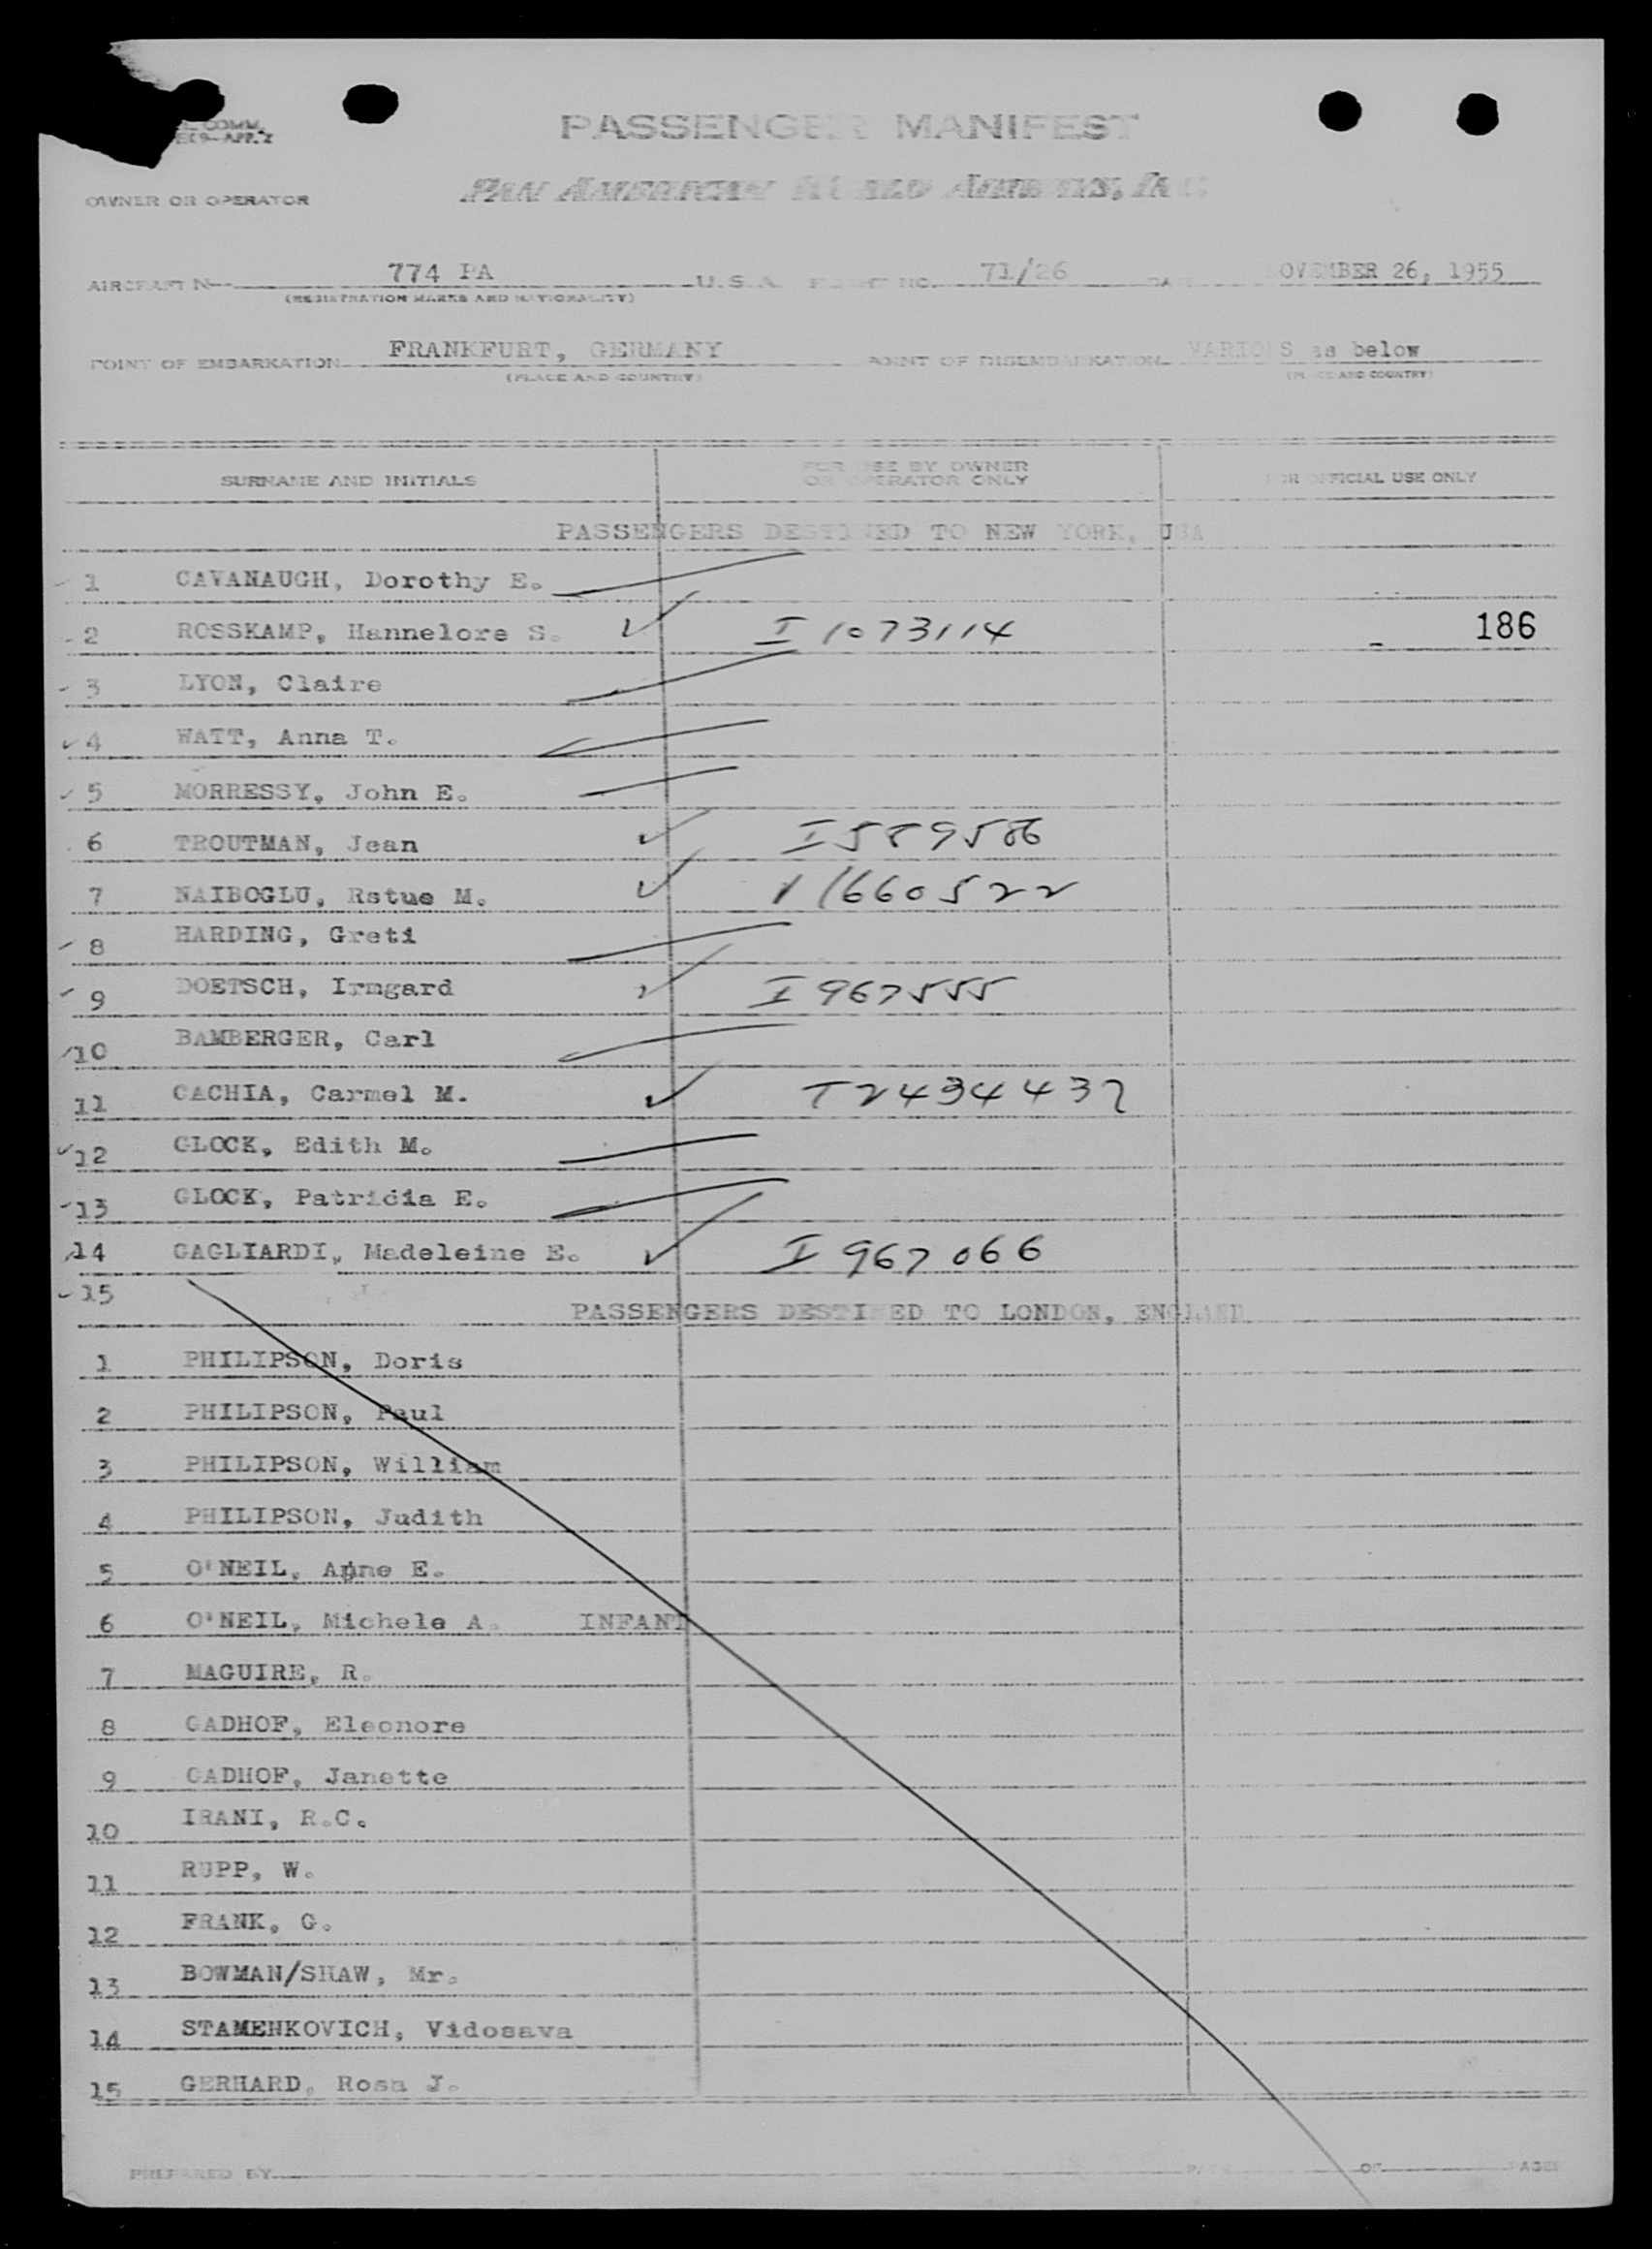 COMM.
APP. 2
PASSENGER MANIFEST
OWNER OR OPERATOR PAN AMERICAN WORLD AIRWAYS, INC.
AIRCRAFT 774 PA U.S.A. FLIGHT NO. 71/26 DATE NOVEMBER 26, 1955
(REGISTRATION MARKS AND NATIONALITY)
POINT OF EMBARKATION FRANKFURT, GERMANY POINT OF DISEMBARKATION VARIOUS as below
(PLACE AND COUNTRY) (PLACE AND COUNTRY)
SURNAME AND INITIALS FOR USE BY OWNER OR OPERATOR ONLY FOR OFFICIAL USE ONLY
PASSENGERS DESTINED TO NEW YORK, USA
1 CAVANAUGH, Dorothy E.
2 ROSSKAMP, Hannelore S. I 1073114 186
3 LYON, Claire
4 WATT, Anna T.
5 MORRESSY, John E.
6 TROUTMAN, Jean I 589586
7 NAIBOGLU, Rstue M. V 1660522
8 HARDING, Greti
9 DOETSCH, Irmgard I 967555
10 BAMBERGER, Carl
11 CACHIA, Carmel M. T2434432
12 GLOCK, Edith M.
13 GLOCK, Patricia E.
14 GAGLIARDI, Madeleine E. I 967066
15
PASSENGERS DESTINED TO LONDON, ENGLAND
1 PHILIPSON, Doris
2 PHILIPSON, Paul
3 PHILIPSON, William
4 PHILIPSON, Judith
5 O'NEIL, Anne E.
6 O'NEIL, Michele A. INFANT
7 MAGUIRE, R.
8 GADHOF, Eleonore
9 GADHOF, Janette
10 IRANI, R.C.
11 RUPP, W.
12 FRANK, G.
13 BOWMAN/SHAW, Mr.
14 STAMENKOVICH, Vidosava
15 GERHARD, Rosa J.
PREPARED BY OF PAGES